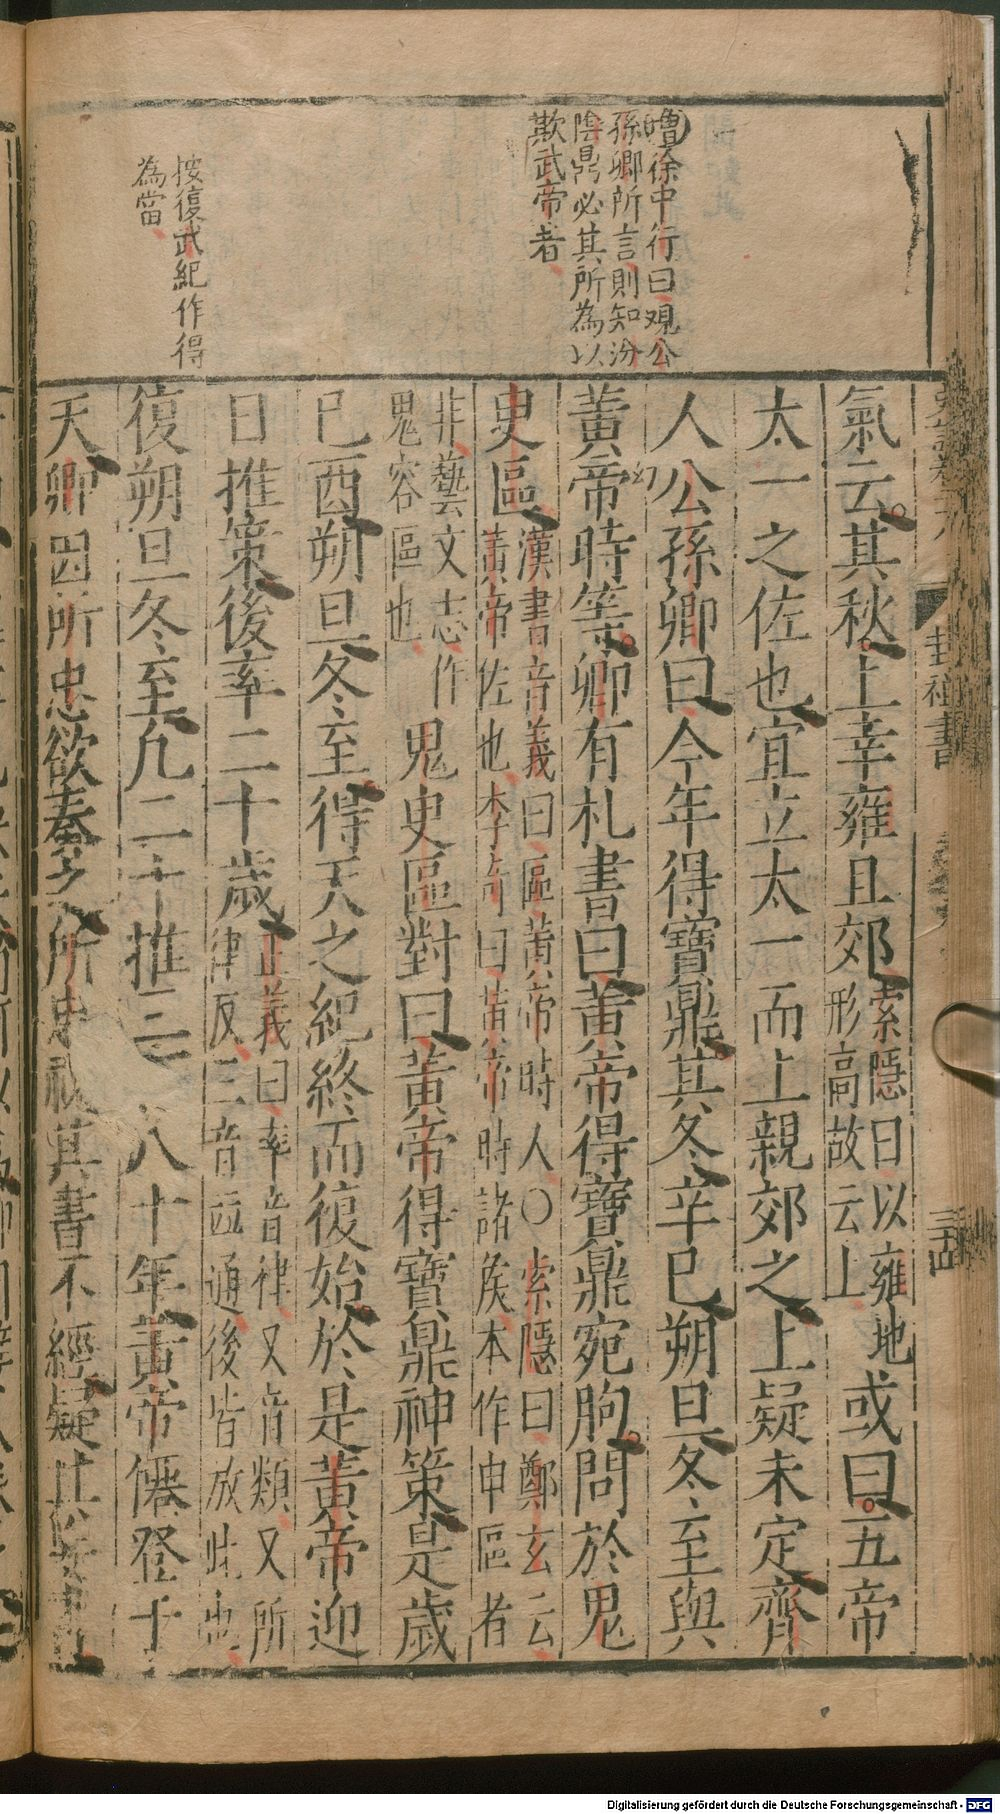 增徐中行曰觀公
孫卿所言則知汾
陰鼎必其所為以
欺武帝者
按復武紀作得
為當
氣云其秋上幸雍且郊索隱曰以雍地形高故云上或曰五帝
太一之佐也宜立太一而上親郊之上疑未定齊
人公孫卿曰今年得寶鼎其冬辛巳朔旦冬至與
黃帝時等卿有札書曰黃帝得寶鼎宛朐問於鬼
史區漢書音義曰區黃帝時人○索隱曰鄭玄云黃帝佐也李奇曰黃帝時諸侯本作申區者
非藝文志作鬼容區也鬼史區對曰黃帝得寶鼎神策是歲
已酉朔旦冬至得天之紀終而復始於是黃帝迎
日推策後率二十歲正義曰率音律又音類又所律反三音並通後皆放此也
復朔旦冬至凡二十推三八十年黃帝僊登于
天卿因所忠欲奏之所忠視其書不經疑其妄書
封禪書
三十四
Digitalisierung gefördert durch die Deutsche Forschungsgemeinschaft - DFG